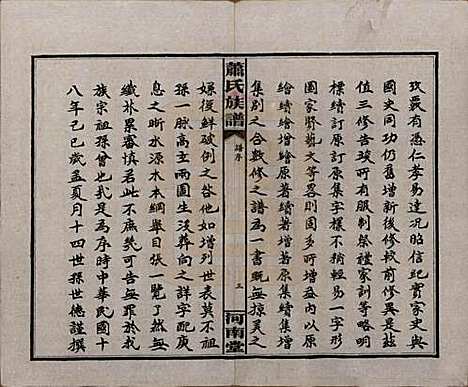 攷覈有憑仁孝易達況昭信紀實家史與
國史同功仍舊增新後修軼前修異是茲
值三修告竣所有服制祭禮家訓等略明
標續訂原訂原集字樣不稍輕易一字形
圖家牌藝文等單則圖首增內以原
繪續繪增繪原著續著增著原集續集增
集別之合數修之譜為一書既無掠美之
蕭氏族譜
譜序
三
河南堂
嫌復鮮破例之咎他如增列世表莫不祖
孫一脈高立兩圖生沒葬向之詳字疵瑕
息之晰水源水本綱舉目張一覽了然而
纖芥累審慎若此不庶幾可告無罪於我
族宗祖孫曾也乎是為序時中華民國十
八年己巳歲孟夏月十四世孫世德謹撰